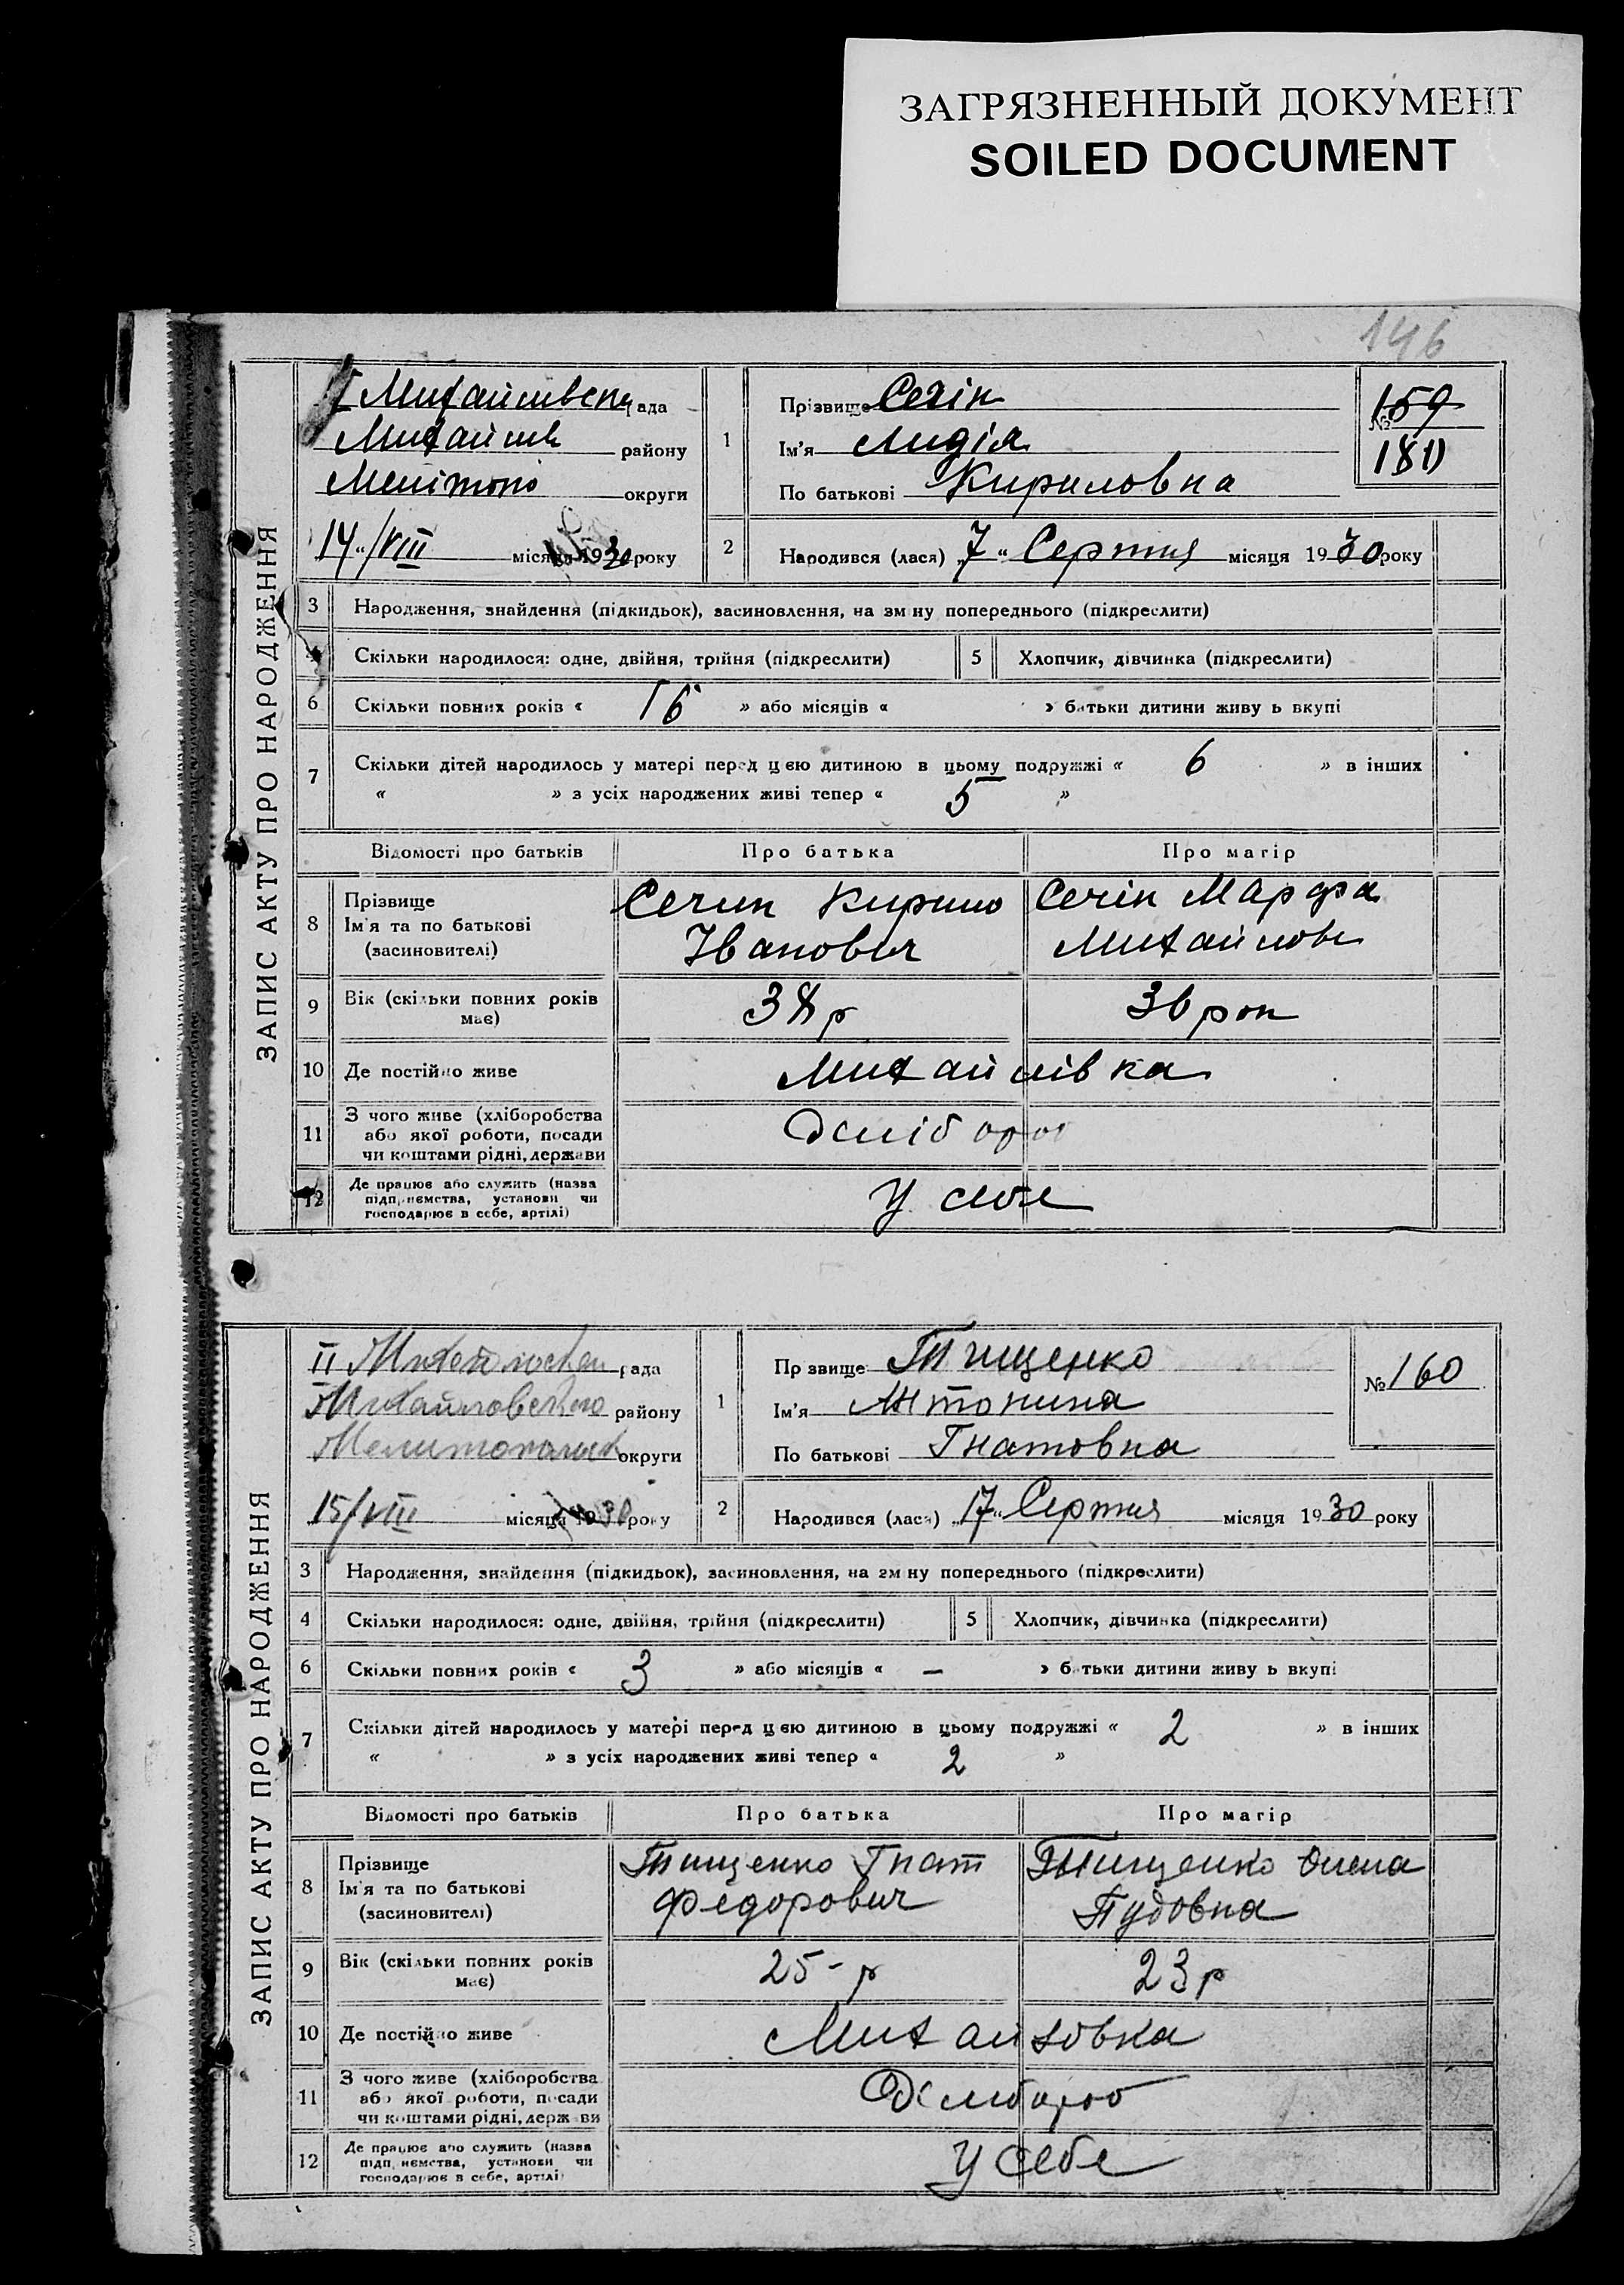 ЗАГРЯЗНЕННЫЙ ДОКУМЕНТ
SOILED DOCUMENT
146
ЗАПИС АКТУ ПРО НАРОДЖЕННЯ
рада
Михайлів району
Меліто округи
14"/VIII місяця 1930 року
1 Прізвище Сечін
Ім'я Лидія
По батькові Кириловна
№ 159
180
2 Народився (лася) „7“ Серпня місяця 1930 року
3 Народження, знайдення (підкидьок), засиновлення, на зміну попереднього (підкреслити)
4 Скільки народилося: одне, двійня, трійня (підкреслити) 5 Хлопчик, дівчинка (підкреслити)
6 Скільки повних років « 16 » або місяців « » батьки дитини живуть вкупі
7 Скільки дітей народилось у матері перед цією дитиною в цьому подружжі « 6 » в інших
« » з усіх народжених живі тепер « 5 »
Відомості про батьків Про батька Про матір
8 Прізвище
Ім'я та по батькові
(засиновителі)
Сечин Кирило
Іванович
Сечін Марфа
Михайловн
9 Вік (скільки повних років має) 38 р 36 рок
10 Де постійно живе Михайлівка
11 З чого живе (хліборобства
або якої роботи, посади
чи коштами рідні, держави
Хлібороб
12 Де працює або служить (назва
підприємства, установи чи
господарює в себе, артілі)
У себе
ЗАПИС АКТУ ПРО НАРОДЖЕННЯ
II рада
Михайловского району
округи
15/VIII місяця 1930 року
1 Прізвище Тищенко
Ім'я Антонина
По батькові Гнатовна
№ 160
2 Народився (лася) „17“ Серпня місяця 1930 року
3 Народження, знайдення (підкидьок), засиновлення, на зміну попереднього (підкреслити)
4 Скільки народилося: одне, двійня, трійня (підкреслити) 5 Хлопчик, дівчинка (підкреслити)
6 Скільки повних років « 3 » або місяців « — » батьки дитини живуть вкупі
7 Скільки дітей народилось у матері перед цією дитиною в цьому подружжі « 2 » в інших
« » з усіх народжених живі тепер « 2 »
Відомості про батьків Про батька Про матір
8 Прізвище
Ім'я та по батькові
(засиновителі)
Тищенко Гнат
Федорович
Тищенко Олена
Пудовна
9 Вік (скільки повних років має) 25-р 23 р
10 Де постійно живе Михайловка
11 З чого живе (хліборобства
або якої роботи, посади
чи коштами рідні, держави
Хлібороб
12 Де працює або служить (назва
підприємства, установи чи
господарює в себе, артілі)
У себе